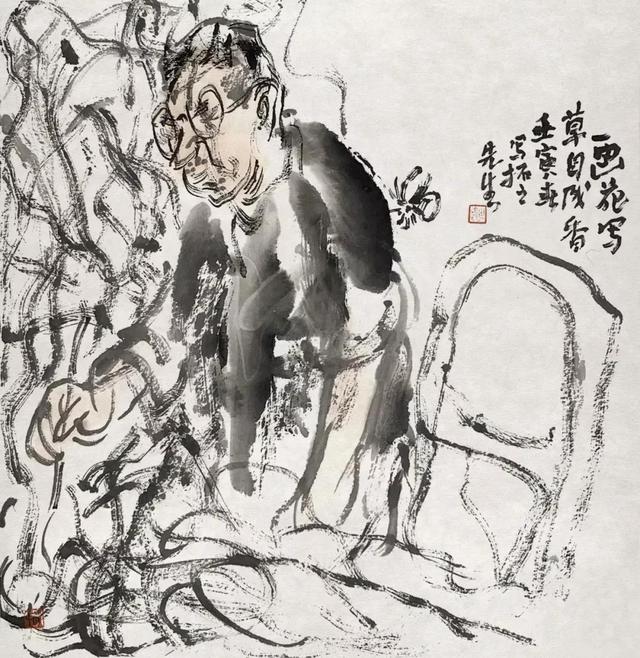 画花写
草自成香
壬寅春
写之
先生